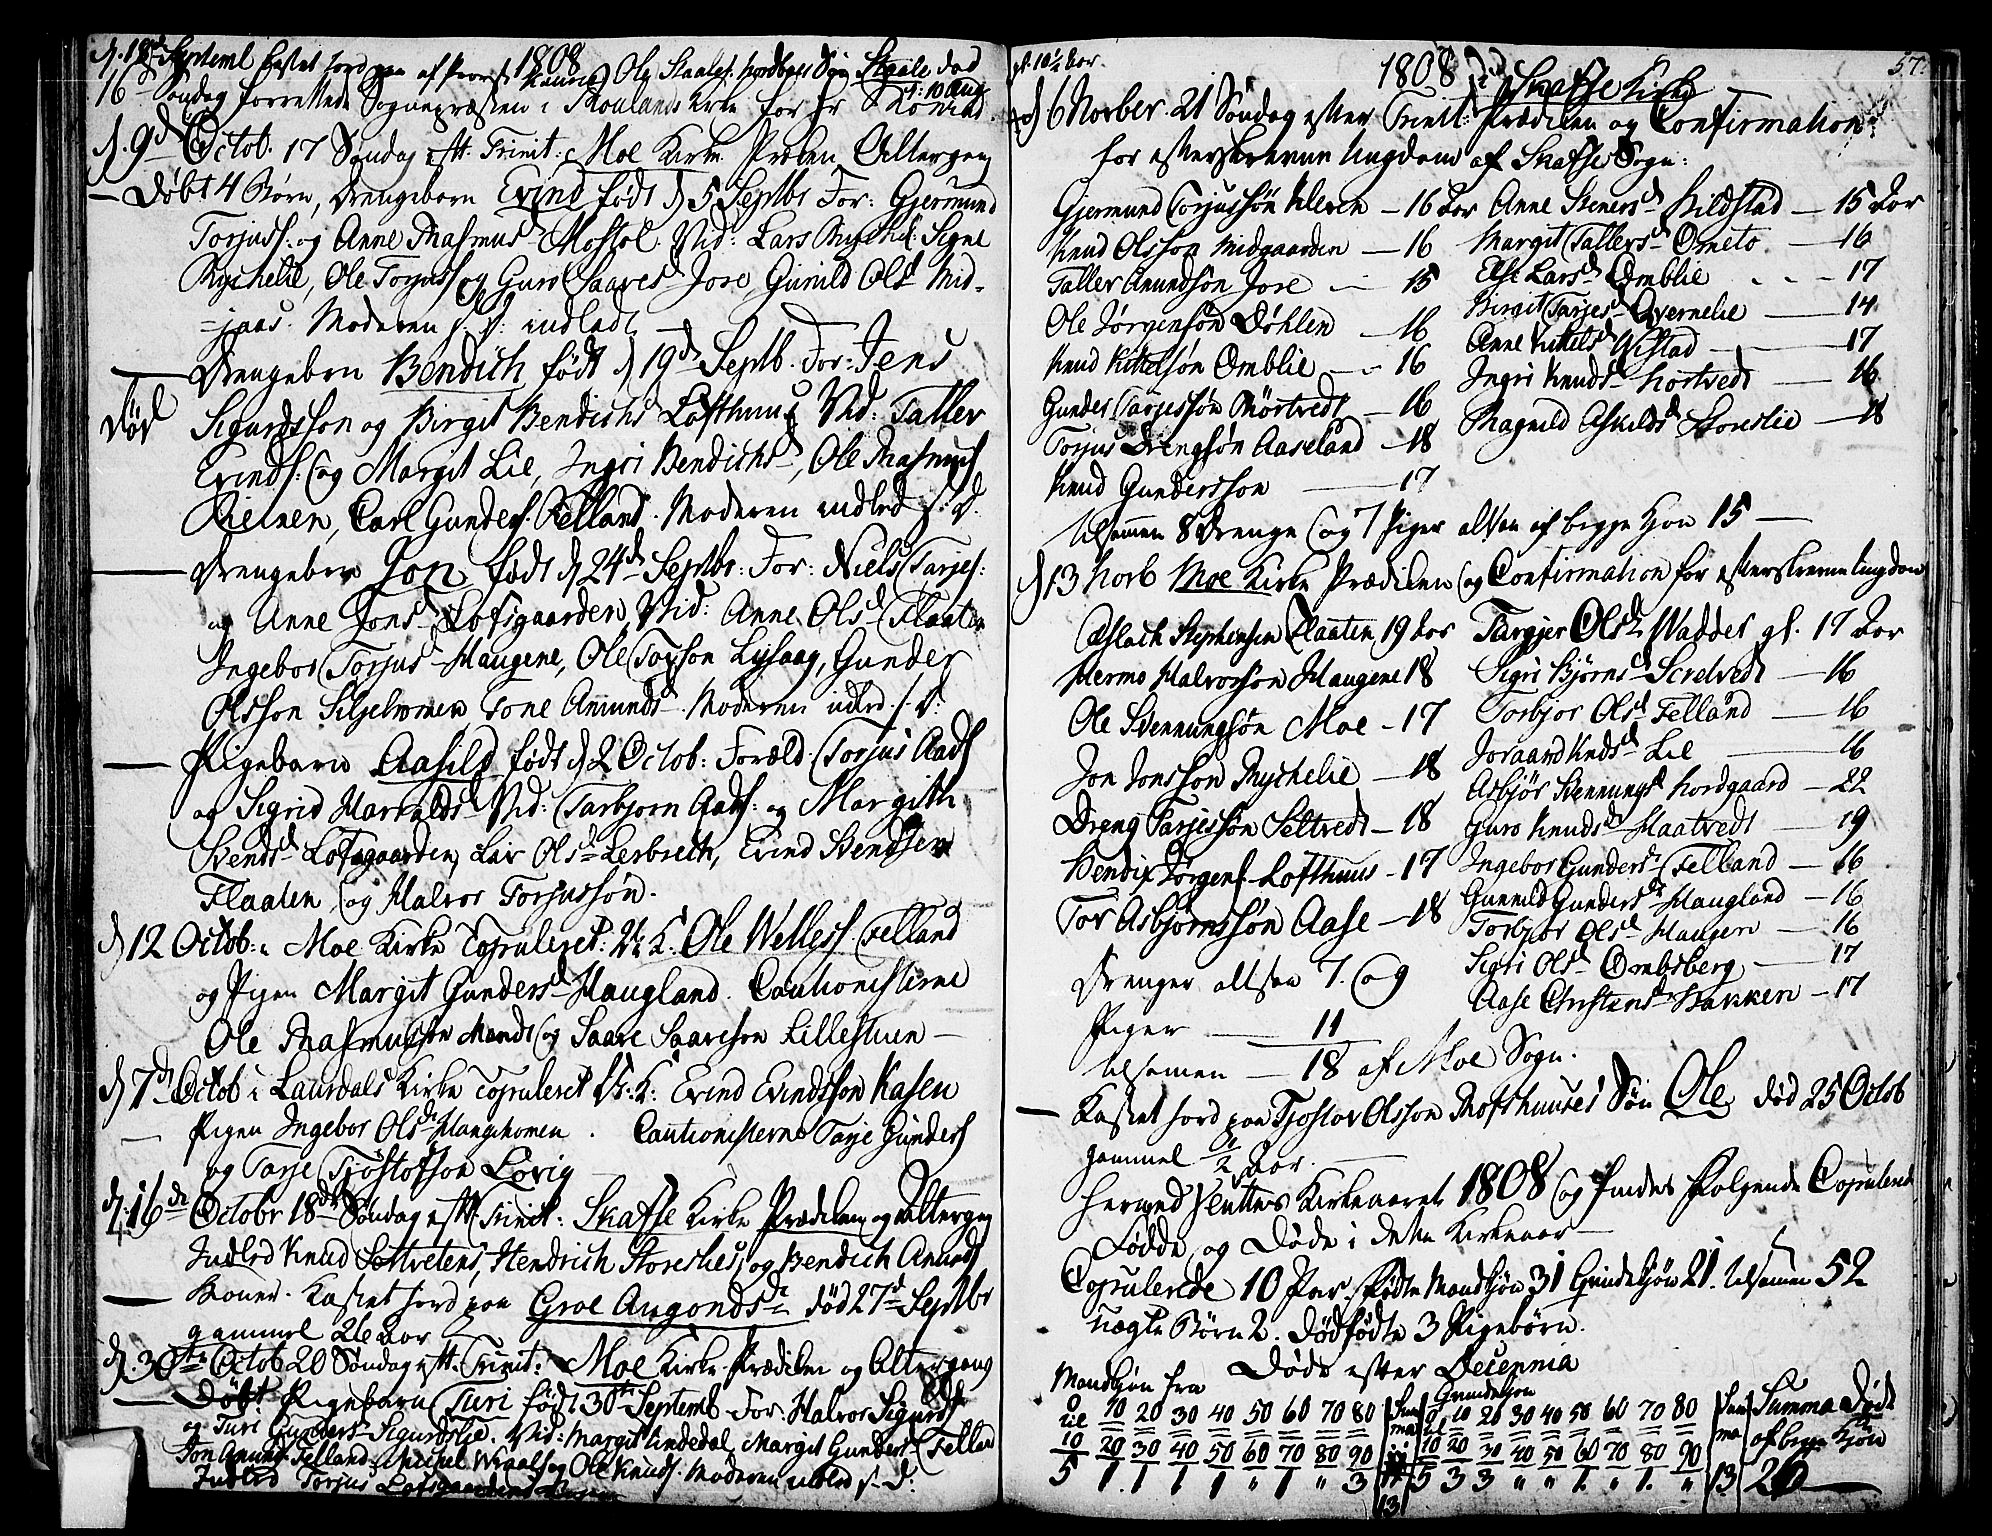 1808
d. 18de Septembr kastet Jord paa af Provst Ole Slaalgs: Nordboes Søn Skaale død d: 10 Aug
16de Søndag forrettede Sognepræsten i Roulands Kirke for Hr
d. 9de Octob. 17 Søndag eft. Trinit: Moe Kirke Præken Altergang
Døbt 4 Børn, Drengebarn Evind født d 5 Septbr For: Gjermund
Torjuss: og Anne Rasmusd Mostøl. Vid: Lars Rychelie Signe
Rychelie, Ole Torjuss og Guro Saaresd Jore Gunild Olsd Mid-
-jaas. Moderen s. D: indledt
Drengebarn Bendich født d 19de Septb. For: Jens
død
Sigurdsson og Birgit Bendichsd Lofthuus Vid: Taller
Evinds: og Margit Lie, Ingri Bendichsd, Ole Rasmuss
Rienen, Carl Gunders. Felland. Moderen indled s. D.
Drengebarn Jon født d 24de Septbr: For: Niels Tarjes:
og Anne Jonsd Lofsgaarden, Vid: Anne Olsd Flaaten
Ingebor Torjusd Haugene, Ole Torsson Lysaag, Gunder
Olsson Tone Amundsd. Moderen indled s. D:
Pigebarn Aasild født d 2 Octob: Foræld: Torjus Aads
og Sigrid Harvaldsd Vid: Tarbjorn Aads: og Margith
Svendsd Lofsgaarden, Liv Olsd Lerbrech, Evind Svendsen
Flaaten, og Halvor Torjussøn.
d 12 Octob: i Moe Kirke Copuleret: U: K: Ole Welless. Felland
og Pigen Margit Gundersd Haugland. Cautionisterne
Ole Rasmusson Mandt og Saare Saaresson Lillestuen
d 7de Octob i Laurdals Kirke Copuleret U: K: Evind Evindsson Kasen
Pigen Ingebor Olsd Haughomen. Cautionisterne Tarje Gunders
og Tarje Tjøstofson Lovig
d. 16de Octobr 18de Søndag eft. Trinit: Skafse Kirke Prædiken og Altergang
Indled Knud Settvetens, Hendrich Storeslies, og Bendich Amunds
Koner. Kastet Jord paa Groe Augondsd død 27de Septbr
gammel 26 Aar
d. 30te Octob 20 Søndag eft. Trinit: Moe Kirke. Prædiken og Altergang
Døbt Pigebarn Turi født 30te Septemb For: Halvor Sigurds
og Turi Gundersd Sigurdslie. Vid: Margit Lindedal, Margit Gundersd Fellan
Jon Amunds Felland, Michel og Ole Knuds: Moderen indled s. D:
Indled Torjus Lofsgaardens
57.
1808
d 6 Novber. 21 Søndag efter Trinit: Prædiken og Confirmation i Skafse Kirke
for efterskrevne Ungdom af Skafse Sogn:
Gjermund Torjussøn Kleven — 16 Aar Anne Stenersd Kildstad — 15 Aar
Knud Olsson Midgaarden — 16 Margit Tallersd Ormeto — 16
Taller Anundsøn Jore — 15 Else Larsd Omblie — 17
Ole Jørgensøn Døhlen — 16 Birgit Tarjesd Qvernelie — 14
Knud Kittelsøn Omblie — 16 Anne Kittelsd Wistad — 17
Gunder Tarjessøn Mörtvedt — 16 Ingri Knudsd Hortvedt — 16
Torjus Drengsøn Aaseland — 18 Ragnild Askildsd Storeslie — 18
Knud Gundersson — 17
Tilsammen 8 Drenge og 7 Piger altsaa af begge Kjøn 15 —
d 13 Novb Moe Kirke Prædiken og Confirmation for efterskrevne Ungdom
Aslach Stephensen Flaaten 19 Aar Targjer Olsd Wadder gl. 17 Aar
Hermo Halvorsøn Haugene 18 Sigri Bjørnsd Scretvedt — 16
Ole Svennungsøn Moe — 17 Torbjør Olsd Felland — 16
Jon Jonsson Rychelie — 18 Joraand Knudsd Lie — 16
Dreng Tarjessøn Seltvedt — 18 Asbjør Svennungsd Nordgaard — 22
Bendix Jørgens. Lofthuus — 17 Guro Knudsd Haatvedt — 19
Tor Asbjørnssøn Aase — 18 Ingebor Gundersd Felland — 16
Gunnild Gundersd Haugland — 16
Torbjør Olsd Haugen — 16
Sigri Olsd Ombsberg — 17
Aase Christensd Bakken — 17
Drenger altsaa 7. og
Piger — 11
Tilsamen — 18 af Moe Sogn.
Kastet Jord paa Tjostov Olsson Rofthuuses Søn Ole død 25 Octob
gammel 1/2 Aar.
Hermed sluttes Kirkeaaret 1808 og findes følgende Copulerede
Fødde, og Døde i dette Kirkeaar
Copulerede 10 Par. Fødte Mandkjøn 31 Qvindekjøn 21. Tilsamen 52
uægte Børn 2. Dødfødte 3 Pigebørn.
Døde efter Decennia
Mandkjøn fra Qvindekjøn
0 10 20 30 40 50 60 70 80 Summa 0 10 20 30 40 50 60 70 80 Summa Summa Døde
til 10 20 30 40 50 60 70 80 90 til 10 20 30 40 50 60 70 80 90 af begge Kjøn
5 1 1 1 1 " 1 " 3 13 5 3 3 " " 1. " 1. " 13 26